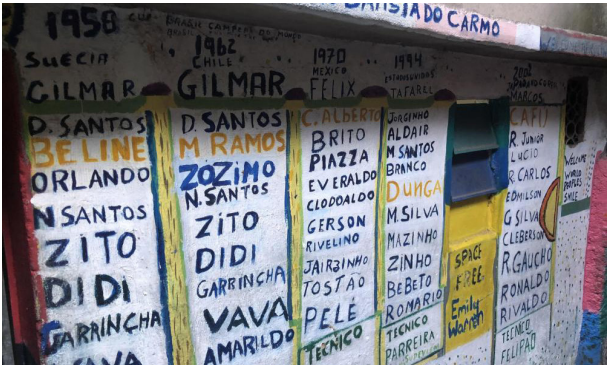 DO CARMO
1958
SUECIA
GILMAR
D. SANTOS
BELINE
ORLANDO
N SANTOS
ZITO
DIDI
GARRINCHA
VAVA
1962
CHILE
GILMAR
D. SANTOS
M RAMOS
ZOZIMO
N. SANTOS
ZITO
DIDI
GARRINCHA
VAVA
AMARILDO
1970
MEXICO
FELIX
C. ALBERTO
BRITO
PIAZZA
EVERALDO
CLODOALDO
GERSON
RIVELINO
JAIRZINHO
TOSTÃO
PELÉ
TECNICO
1994
TAFAREL
JORGINHO
ALDAIR
M SANTOS
BRANCO
DUNGA
M. SILVA
MAZINHO
ZINHO
BEBETO
ROMARIO
TECNICO
PARREIRA
SPACE
FREE
Emily
Warren
2002
MARCOS
CAFU
R. JUNIOR
LUCIO
R CARLOS
EDMILSON
G SILVA
CLEBERSON
R GAUCHO
RONALDO
RIVALDO
TECNICO
FELIPAO
WELCOME
WORLD
PEOPLES
SMILE